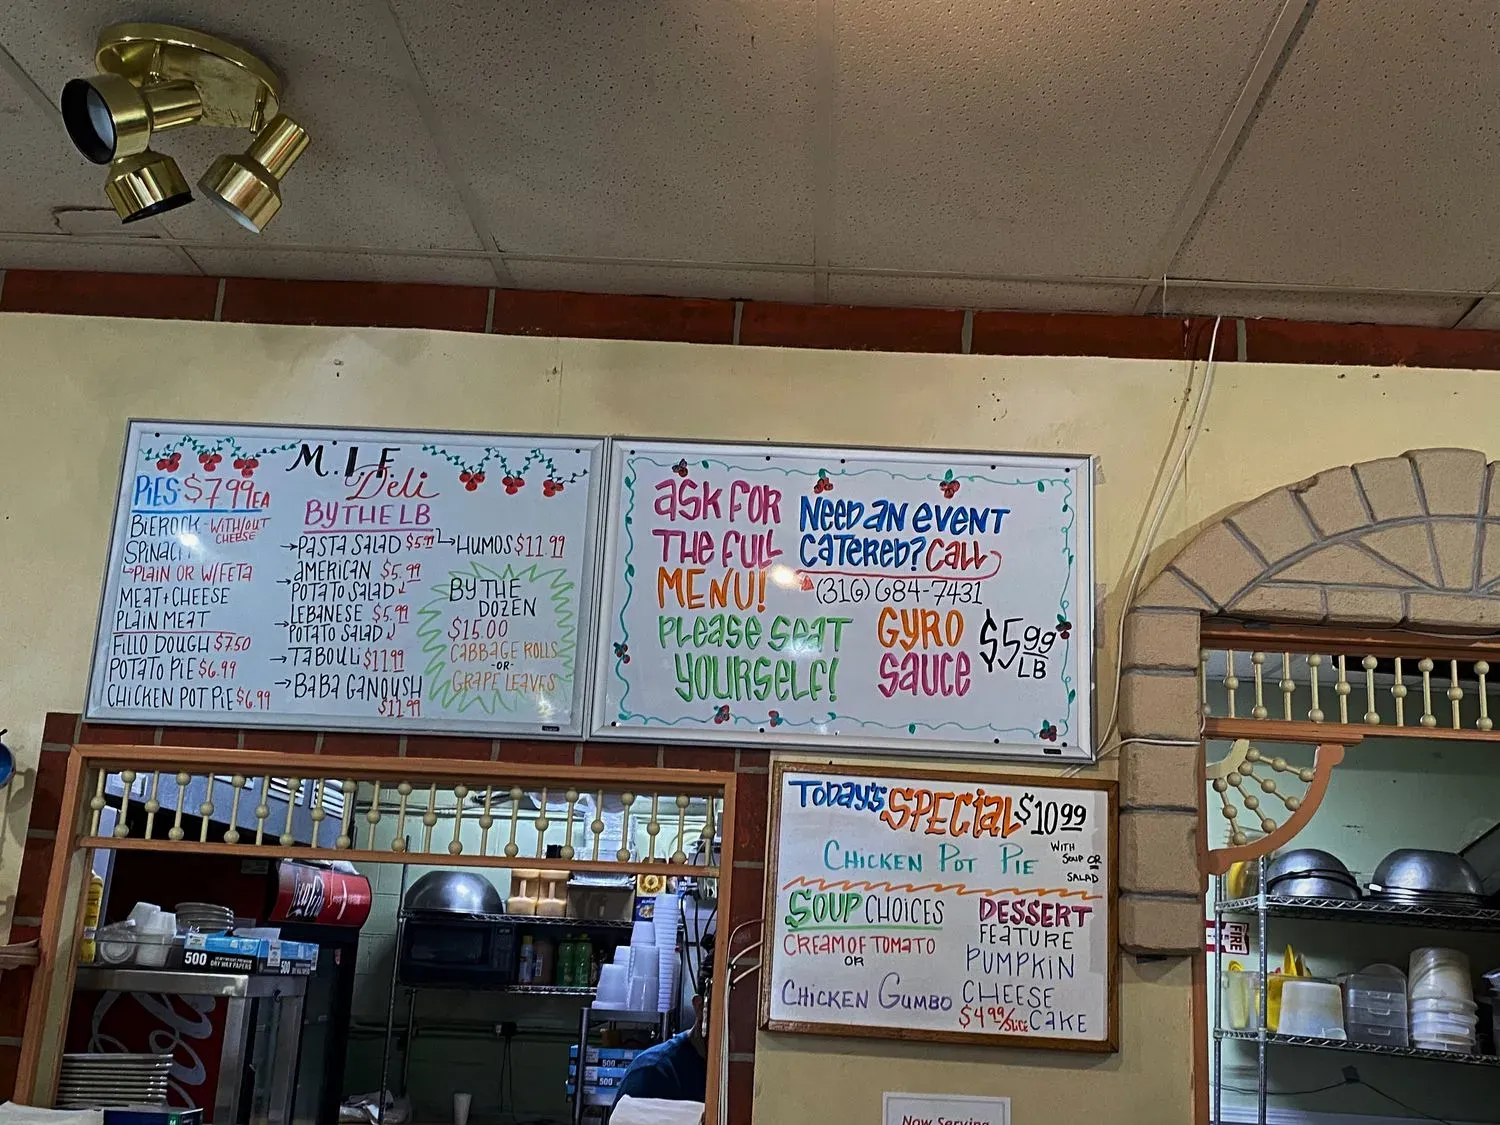 M.I.F
Deli
PIES $7.99 EA
BIEROCK - WITH/OUT
CHEESE
SPINACH
PLAIN OR W/FETA
MEAT + CHEESE
PLAIN MEAT
FILLO DOUGH $7.50
POTATO PIE $6.99
CHICKEN POT PIE $6.99
BY THE LB
→PASTA SALAD $5.99
→AMERICAN $5.99
POTATO SALAD
→LEBANESE $5.99
POTATO SALAD
→TABOULI $11.99
→BABA GANOUSH
$11.99
→HUMOS $11.99
BY THE
DOZEN
$15.00
CABBAGE ROLLS
-OR-
GRAPE LEAVES
ASK FOR
THE FULL
MENU!
PLEASE SEAT
YOURSELF!
NEED AN EVENT
CATERED? CALL
(316) 684-7431
GYRO
SAUCE
$5.99
LB
TODAY'S SPECIAL $10.99
CHICKEN POT PIE
WITH
SOUP OR
SALAD
SOUP CHOICES
CREAM OF TOMATO
OR
CHICKEN GUMBO
DESSERT
FEATURE
PUMPKIN
CHEESE
CAKE
$4.99/SLICE
FIRE
500
DRY WAX PAPERS
500
500
500
Now Serving